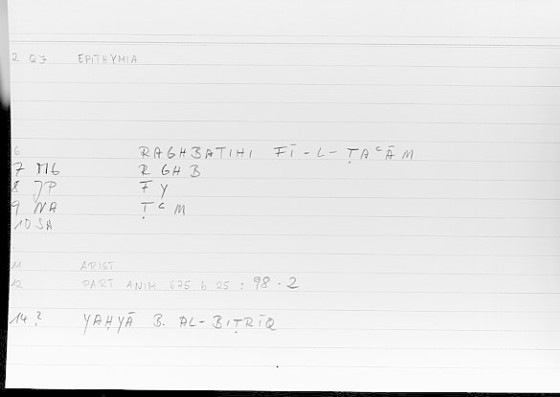 2 GJ EPITHYMIA
6 RAGHBATIHI FĪ-L-ṬAᶜĀM
7 MG R GH B
8 JP F Y
9 NA Ṭ ᶜ M
10 SA
11 ARIST
12 PART ANIM 675 b 25 : 98 - 2
14 ? YAḤYĀ B. AL-BIṬRĪQ